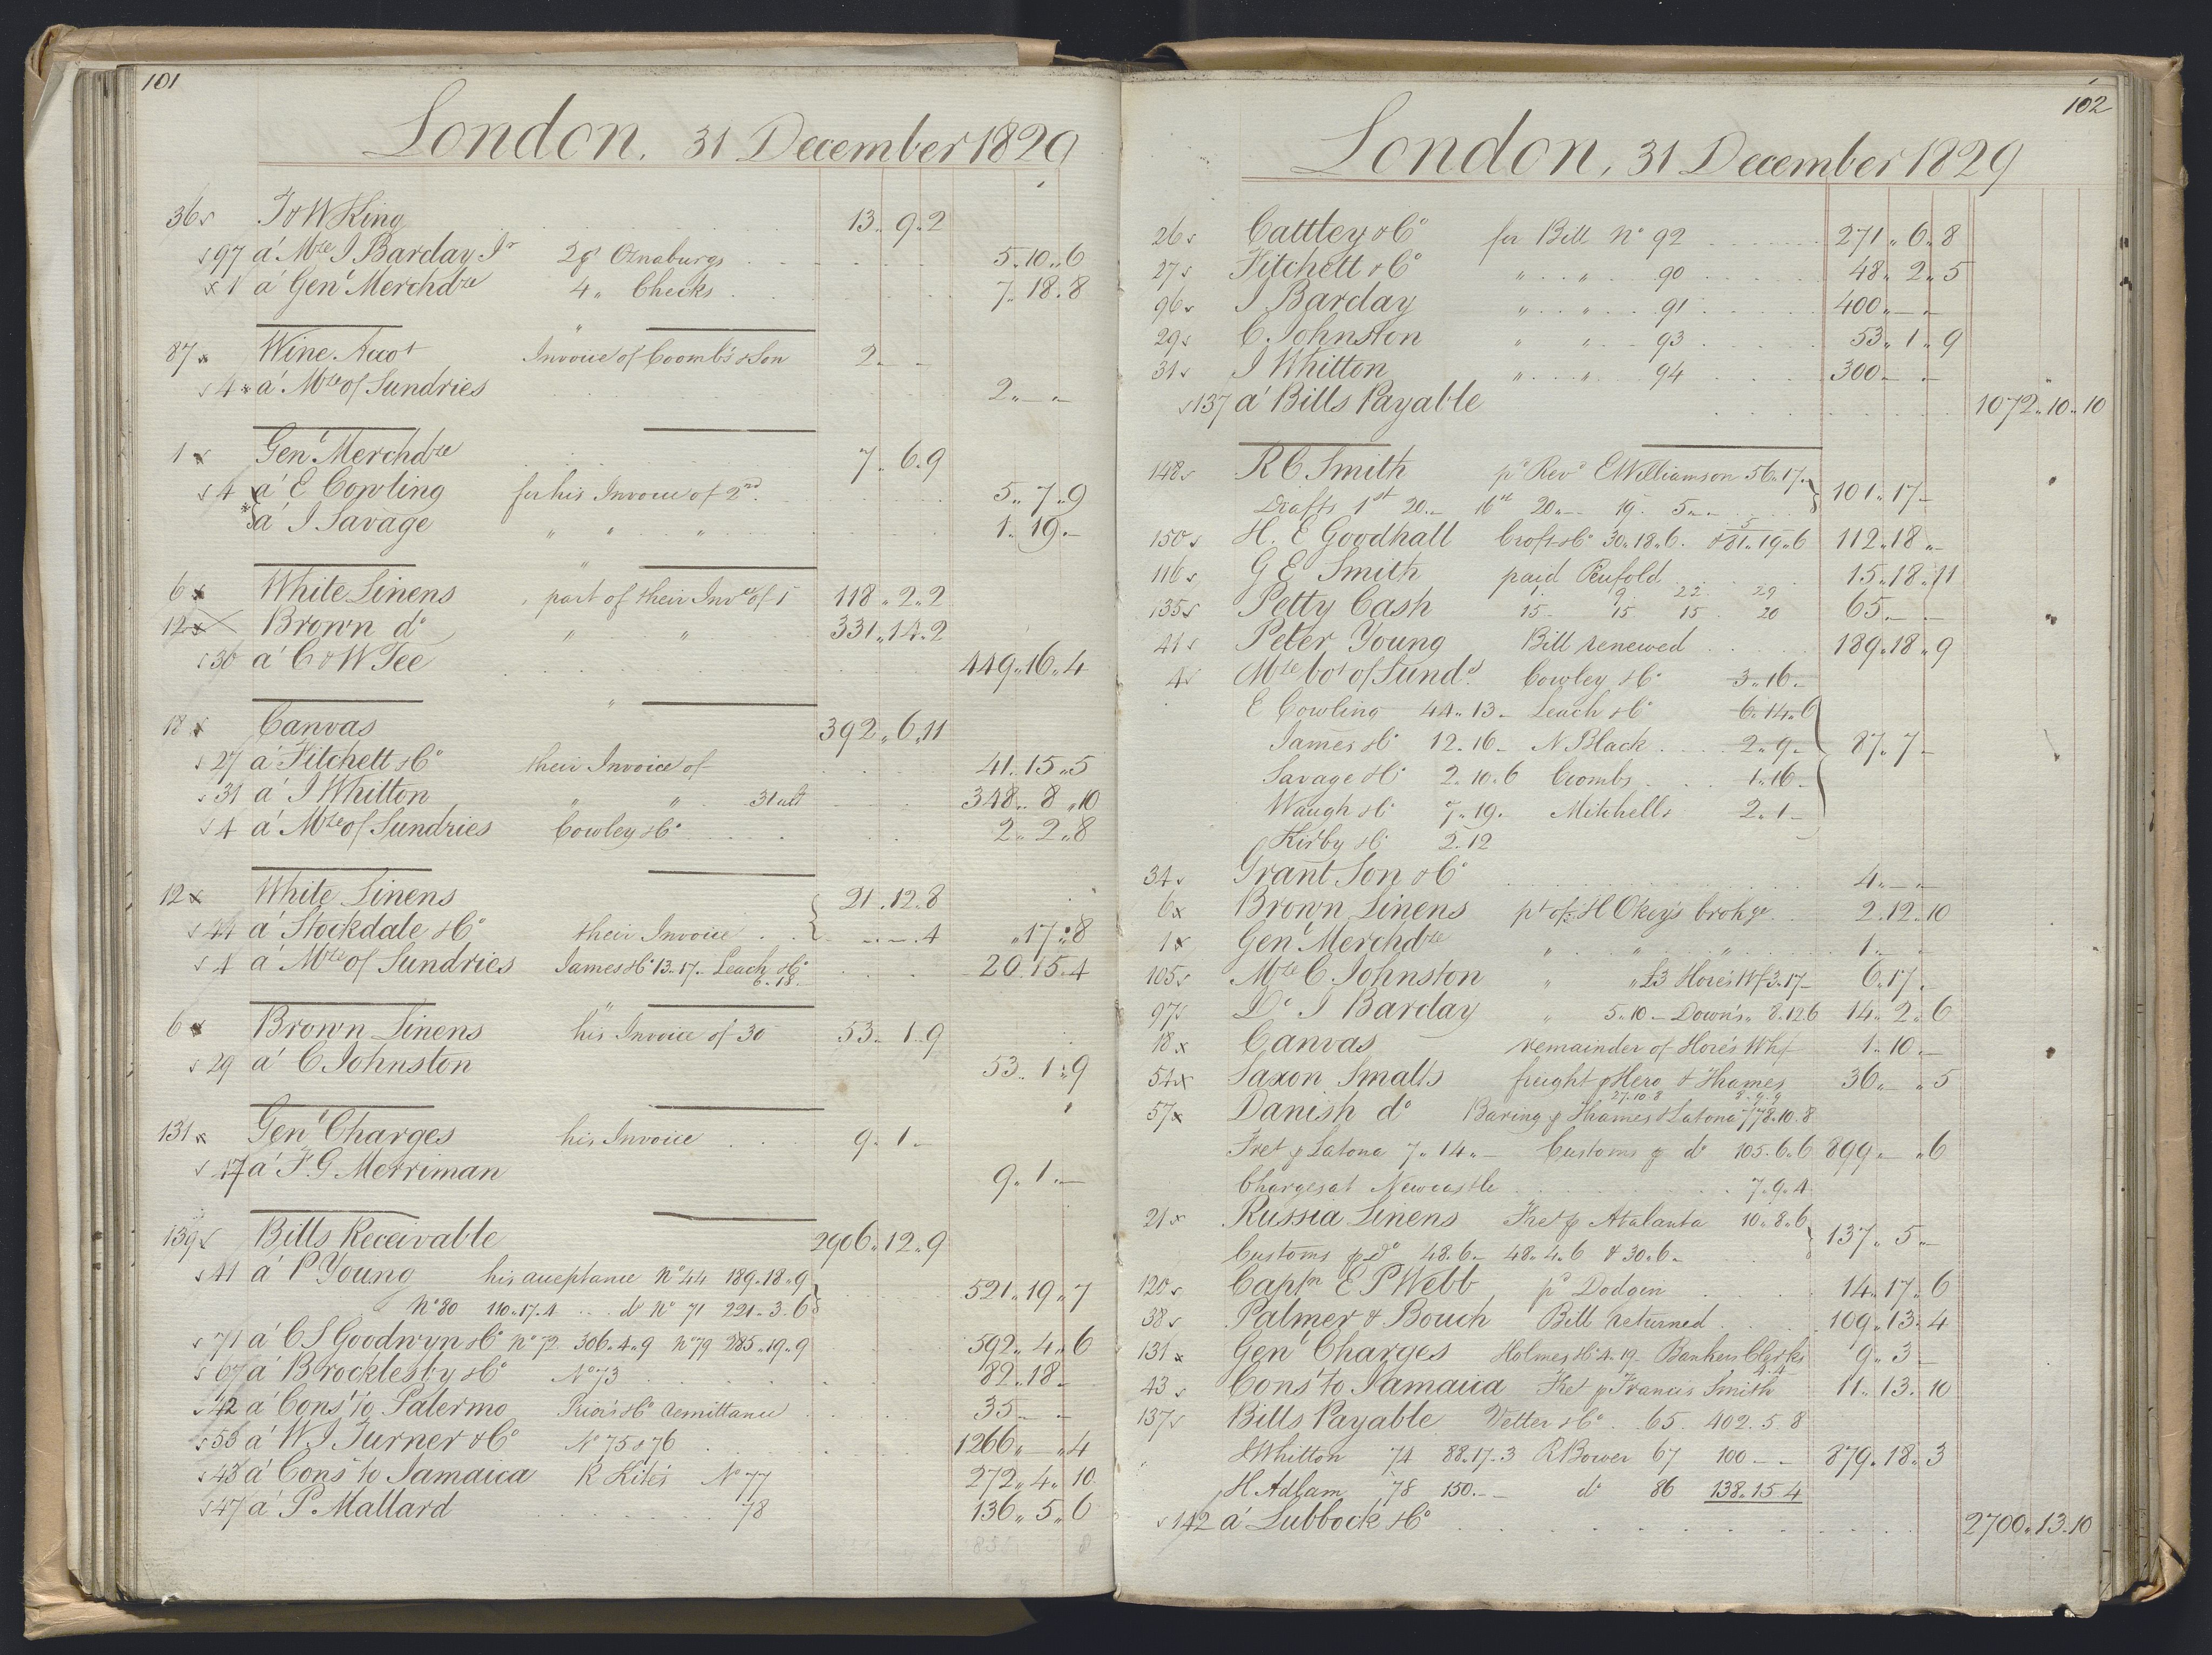 101
London. 31 December 1829
36 J & W King 13.. 9.. 2
97 a' Mdze J Barclay Jr 2 ps Oznaburgs 5.. 10.. 6
1 a' Genl Merchdze 4 " Checks 7.. 18.. 8
87 Wine Acco't Invoice of Coombs & Son 2.. - -
4 a' Mdze of Sundries 2.. - -
1 Genl Merchdze 7.. 6.. 9
4 a' E Cowling for his Invoice of 2nd 5.. 7.. 9
a' J Savage " " " 1.. 19.. -
6 White Linens part of their Invce of 5 118.. 2.. 2
12 Brown do " " 331.. 14.. 2
30 a' C & W Tee 449.. 16.. 4
18 Canvas 392.. 6.. 11
27 a' Fitchett & Co their Invoice of 41.. 15.. 5
31 a' J Whitton " " 31 ult 348.. 8.. 10
4 a' Mdze of Sundries Cowley & Co 2.. 2.. 8
12 White Linens 21.. 12.. 8
44 a' Stockdale & Co their Invoice .. - .. 4 " 17.. 8
4 a' Mdze of Sundries James & Co 13.. 17.. Leach & Co 6.. 18.. 20.. 15.. 4
6 Brown Linens his Invoice of 30 53.. 1.. 9
29 a' C. Johnston 53.. 1.. 9
131 Genl Charges his Invoice 9.. 1.. -
17 a' F. G. Merriman 9.. 1.. -
139 Bills Receivable 2906.. 12.. 9
41 a' P Young his acceptance No 44 189.. 18.. 9
No 80 110.. 17.. 4 do No 71 221.. 3.. 6 521.. 19.. 7
71 a' C S Goodwyn & Co No 72 306.. 4.. 9 No 79 285.. 19.. 9 592.. 4.. 6
67 a' Brocklesby & Co No 73 82.. 18.. -
42 a' Cons't to Palermo Prior's & Co remittance 35.. - -
53 a' W. J. Turner & Co No 75 & 76 1266.. - .. 4
43 a' Cons't to Jamaica R Kite's No 77 272.. 4.. 10
47 a' P. Mallard 78 136.. 5.. 6
102
London, 31 December 1829
26 Cattley & Co for Bill No 92 271.. 6.. 8
27 Fitchett & Co " " 90 48.. 2.. 5
96 J Barclay " " 91 400.. - -
29 C. Johnston " " 93 53.. 1.. 9
31 J Whitton " " 94 300.. - -
137 a' Bills Payable 1072.. 10.. 10
148 R C Smith pd Revd E Williamson 56.. 17..
Drafts 1st 20.. - 16th 20.. - 19. 5.. - 101.. 17.. -
150 H. E Goodhall Croft & Co 30.. 18.. 6. & 81.. 19.. 6 112.. 18.. -
116 G E Smith paid Penfold 15.. 18.. 11
1. 9. 22. 29
135 Petty Cash 15 15 15 20 65.. - -
41 Peter Young Bill renewed 189.. 18.. 9
4 Mdze bot of Sunds Cowley & Co 3.. 16.. -
E Cowling 44.. 13.. - Leach & Co 6.. 14.. 6
James & Co 12.. 16.. - N. Black 2.. 9.. - 87.. 7.. -
Savage & Co 2.. 10.. 6 Coombs 1.. 16.. -
Waugh & Co 7.. 19. Mitchells 2.. 1.. -
Kirby & Co 2.. 12
34 Grant Son & Co 4.. - -
6 Brown Linens pt of H Okey's brokge 2.. 12.. 10
1 Genl Merchdze " " " 1.. - -
105 Mdze C Johnston " " £3 Hore's Wf 3.. 17.. - 6.. 17.. -
97 Do J Barclay " 5.. 10.. - Down's 8.. 12.. 6 14.. 2.. 6
18 Canvas remainder of Hore's Whf 1.. 10.. -
54 Saxon Smalts freight p Hero & Thames 36.. - .. 5
27.. 10.. 8 8.. 9.. 9
57 Danish do Baring p Thames & Latona 778.. 10.. 8
Fret p Latona 7.. 14.. - Customs p do 105.. 6.. 6 899.. - .. 6
Charges at Newcastle 7.. 9.. 4
21 Russia Linens Fret p Atalanta 10.. 8.. 6
Customs p do 48.. 6.. - 48.. 4.. 6 & 30.. 6.. - 137.. 5.. -
120 Captn E P Webb pd Dodgin 14.. 17.. 6
38 Palmer & Bouch Bill returned 109.. 13.. 4
131 Genl Charges Holmes & Co 4.. 19.. Bankers Clerks 4.. 4 9.. 3.. -
43 Cons't to Jamaica Fret p Francis Smith 11.. 13.. 10
137 Bills Payable Vetter & Co 65 402.. 5.. 8
J Whitton 74 88.. 17.. 3 R Bower 67 100.. - - 879.. 18.. 3
H Adlam 78 150.. - - do 86 138.. 15.. 4
142 a' Lubbock & Co 2700.. 13.. 10